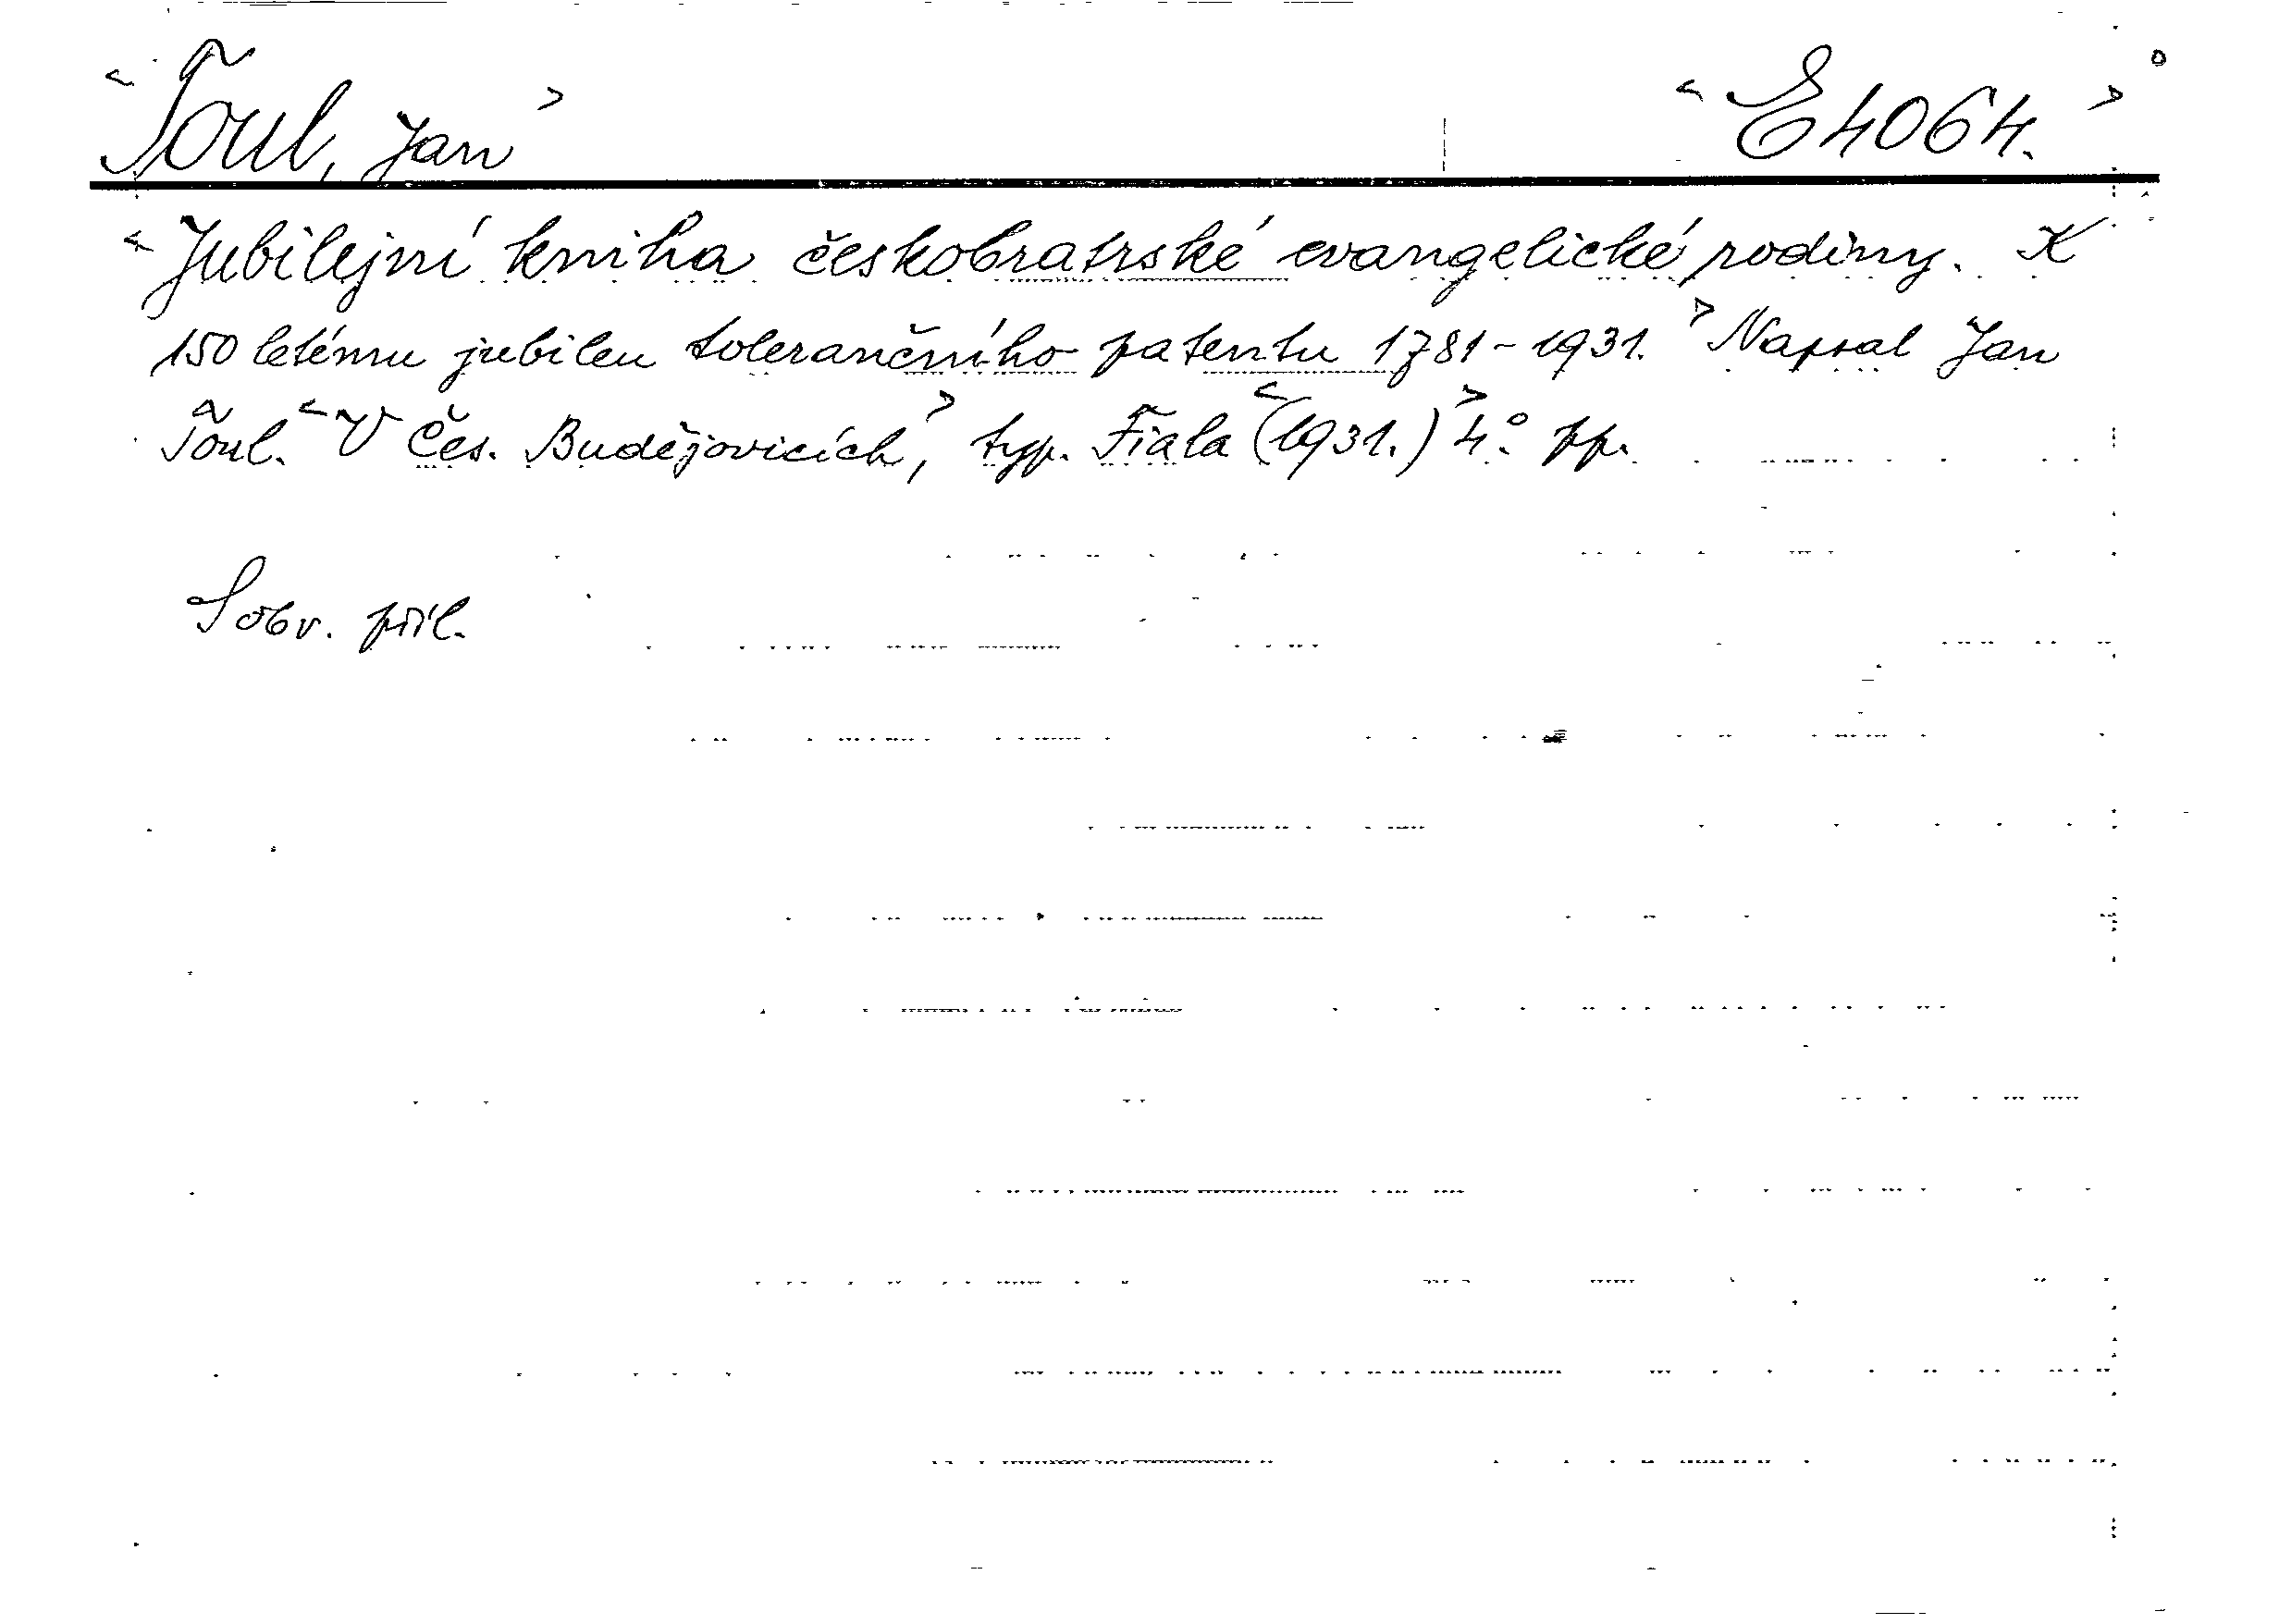 <Toul, Jan> <E4064.>
<Jubilejní kniha českobratrské evangelické rodiny. K
150 letému jubileu tolerančního patentu 1781-1931.> Napsal Jan
Toul. <V Čes. Budějovicích,> typ. Fiala <(1931.)> 4° pp.
S obr. příl.